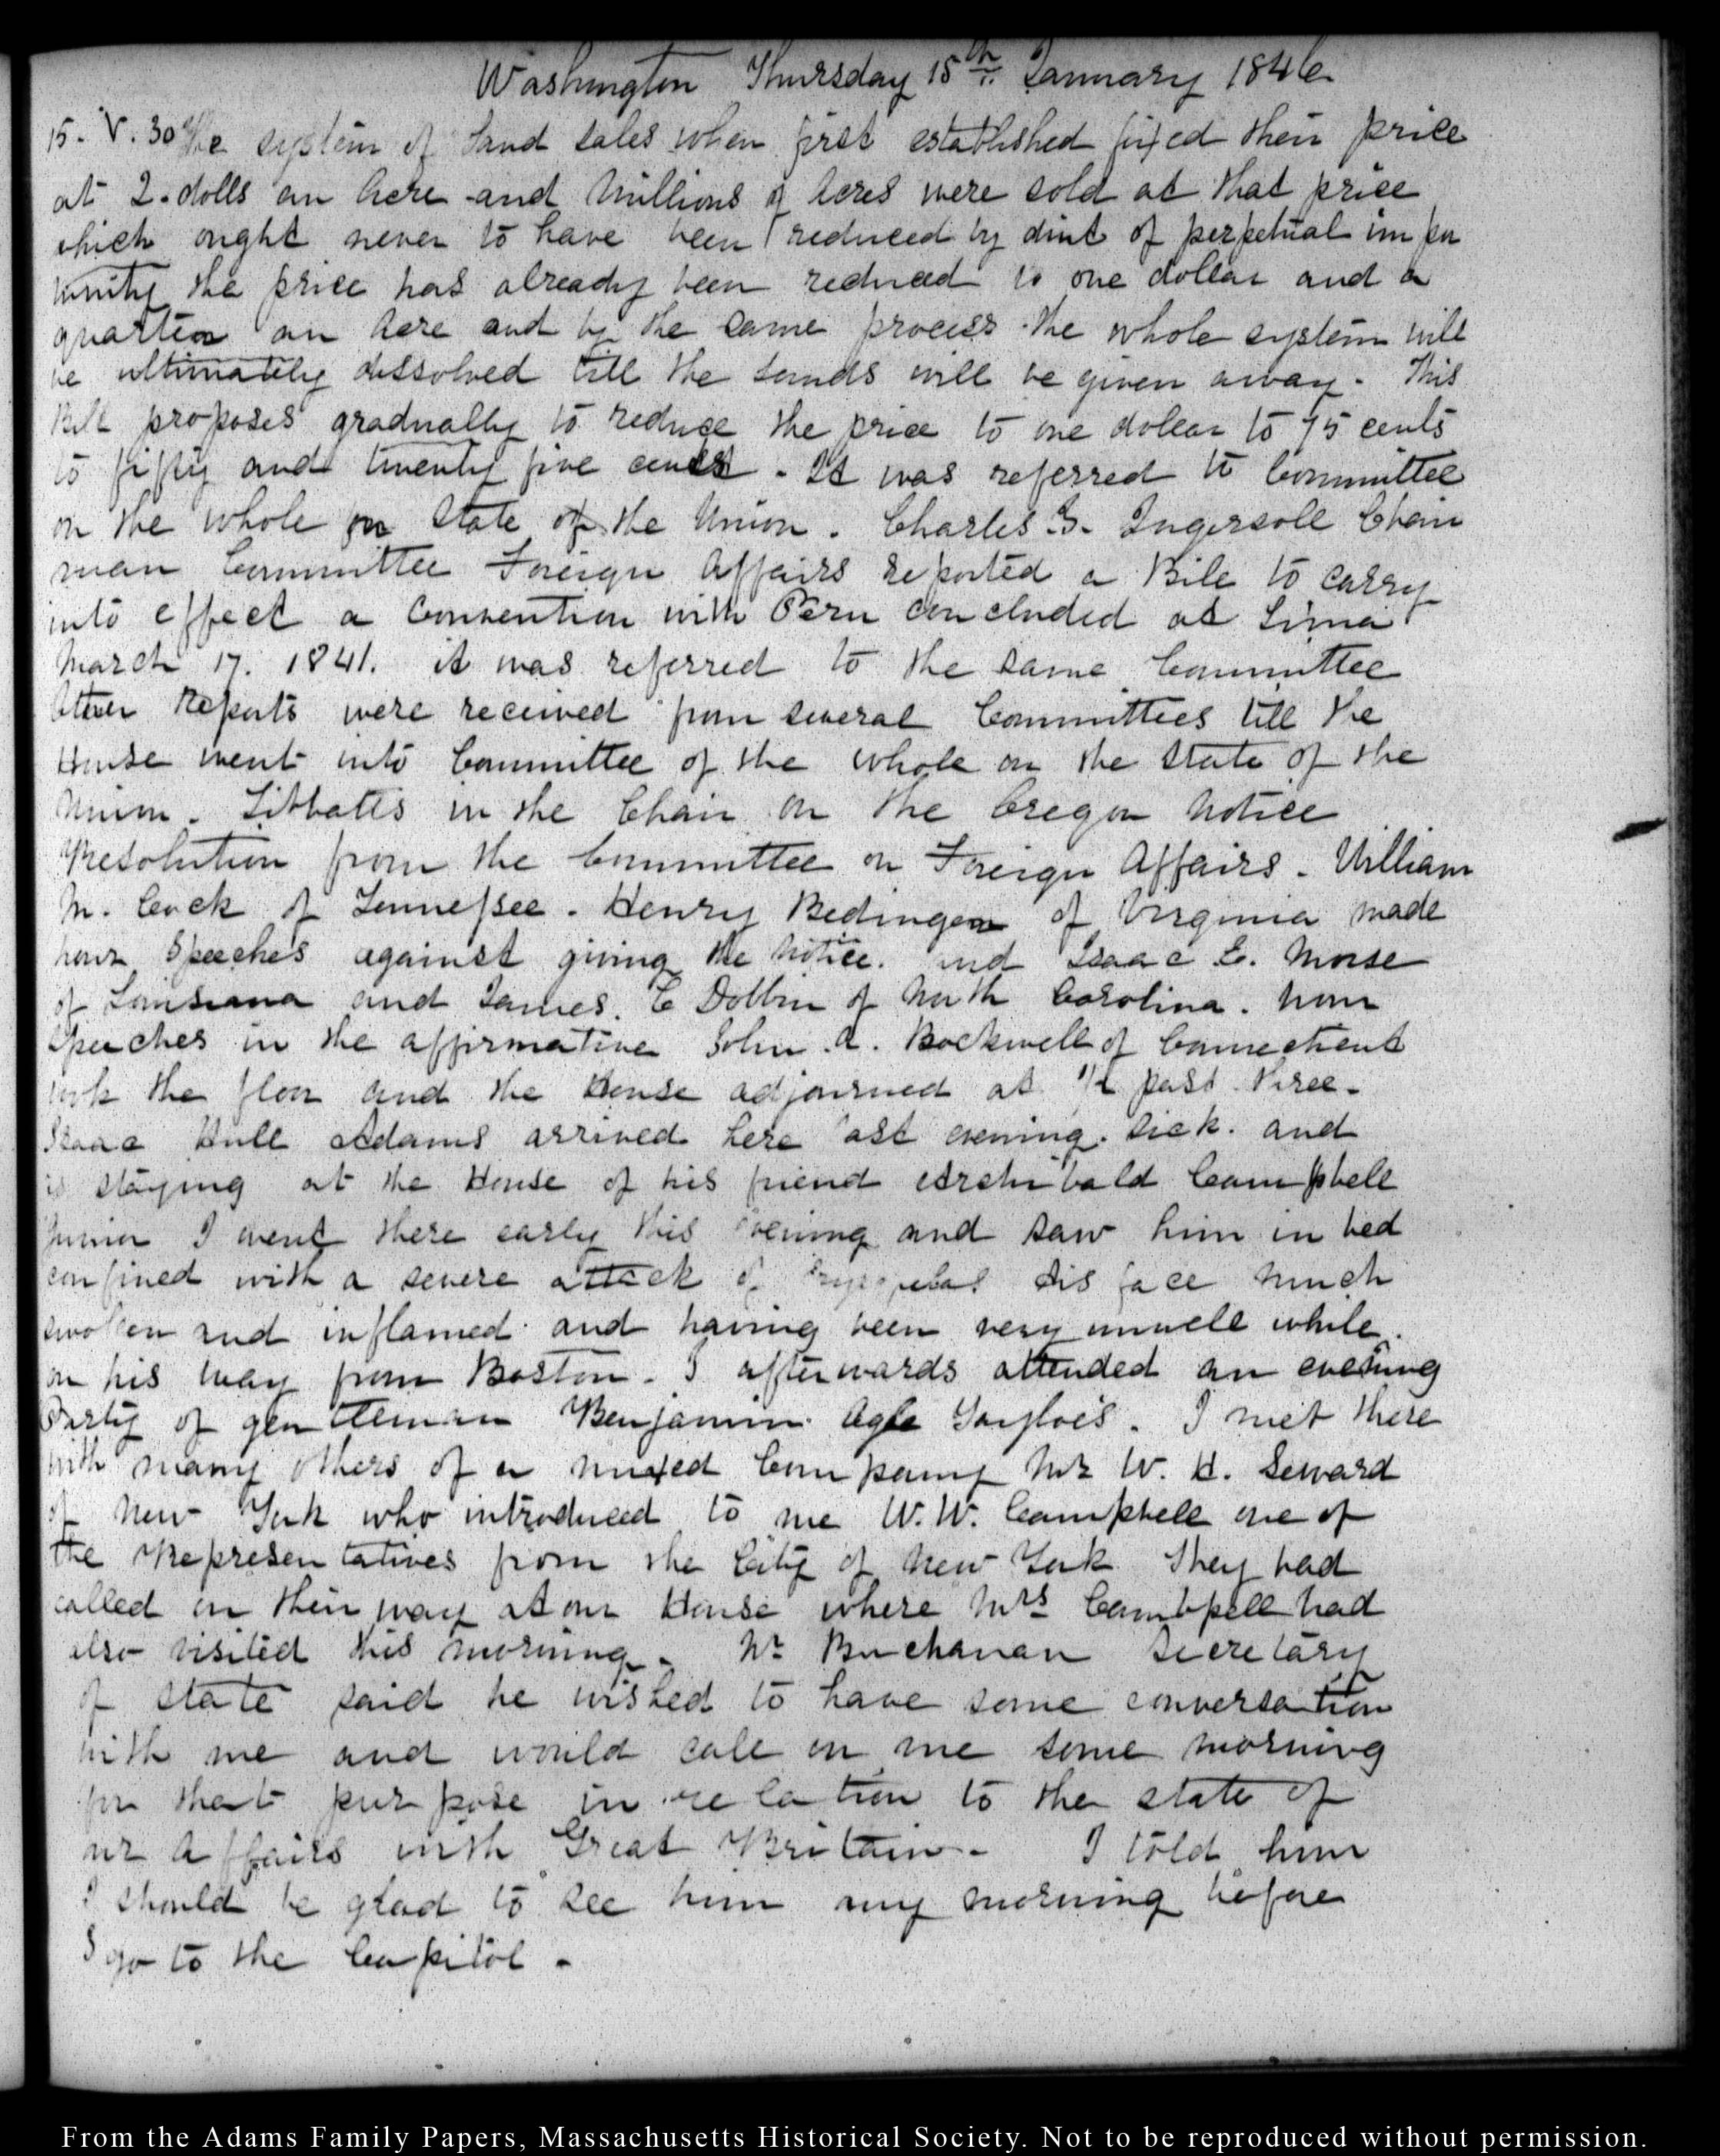 Washington Thursday 15th. January 1846
15. V. 30 The system of Land sales when first established fixed their price
at 2. dolls an Acre and Millions of Acres were sold at that price
which ought never to have been reduced by dint of perpetual impor
tunity the price has already been reduced to one dollar and a
quarter an Acre and by the same process the whole system will
be ultimately dissolved till the Lands will be given away. This
Bill proposes gradually to reduce the price to one dollar to 75 cents
to fifty and twenty five cents. It was referred to Committee
on the whole on State of the Union. Charles J. Ingersoll Chair
man Committee Foreign Affairs reported a Bill to carry
into effect a Convention with Peru concluded at Lima
March 17. 1841. it was referred to the same Committee
Other Reports were received from several Committees till the
House went into Committee of the whole on the State of the
Union. Tibbatts in the Chair on the Oregon Notice
Resolution from the Committee on Foreign Affairs. William
M. Cock of Tennessee. Henry Bedinger of Virginia made
hour Speeches against giving the notice. and Isaac E. Morse
of Louisiana and James. C Dobbin of North Carolina. hour
Speeches in the affirmative John. A. Rockwell of Connecticut
took the floor and the House adjourned at 1/2 past three.
Isaac Hull Adams arrived here last evening. sick. and
is staying at the House of his friend Archibald Campbell
Junior I went there early this evening and saw him in bed
confined with a severe attack of his face much
swollen and inflamed and having been very unwell while
on his way from Boston. I afterwards attended an evening
Party of gentleman Benjamin Ogle Tayloe's. I met there
with many others of a mixed Company Mr W. H. Seward
of New York who introduced to me W. W. Campbell one of
the Representatives from the City of New York They had
called on their way at our House where Mrs Cambpell had
also visited this morning. Mr Buchanan Secretary
of State said he wished to have some conversation
with me and would call on me some morning
for that purpose in relation to the state of
our Affairs with Great Britain. I told him
I should be glad to see him any morning before
I go to the Capitol.
From the Adams Family Papers, Massachusetts Historical Society. Not to be reproduced without permission.